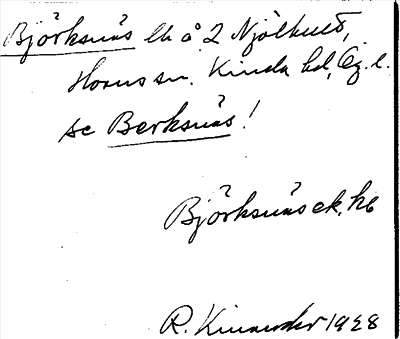 Björksnäs lh å 2 Njölhult,
Horns sn. Kinda hd, Ög. l.
se Berksnäs!
Björksnäs ek. kb
R. Kinander 1928